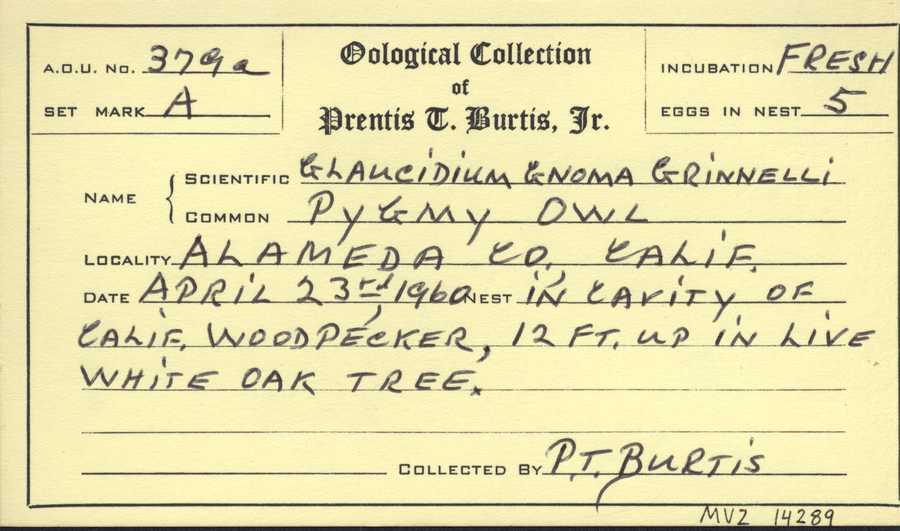 A.O.U. No. 379a
SET MARK A
Oological Collection
of
Prentis T. Burtis, Jr.
INCUBATION FRESH
EGGS IN NEST 5
NAME { SCIENTIFIC GLAUCIDIUM GNOMA GRINNELLI
COMMON PYGMY OWL
LOCALITY ALAMEDA CO., CALIF.
DATE APRIL 23rd, 1960 NEST IN CAVITY OF
CALIF. WOODPECKER, 12 FT. UP IN LIVE
WHITE OAK TREE.
COLLECTED BY P.T. BURTIS
MVZ 14289